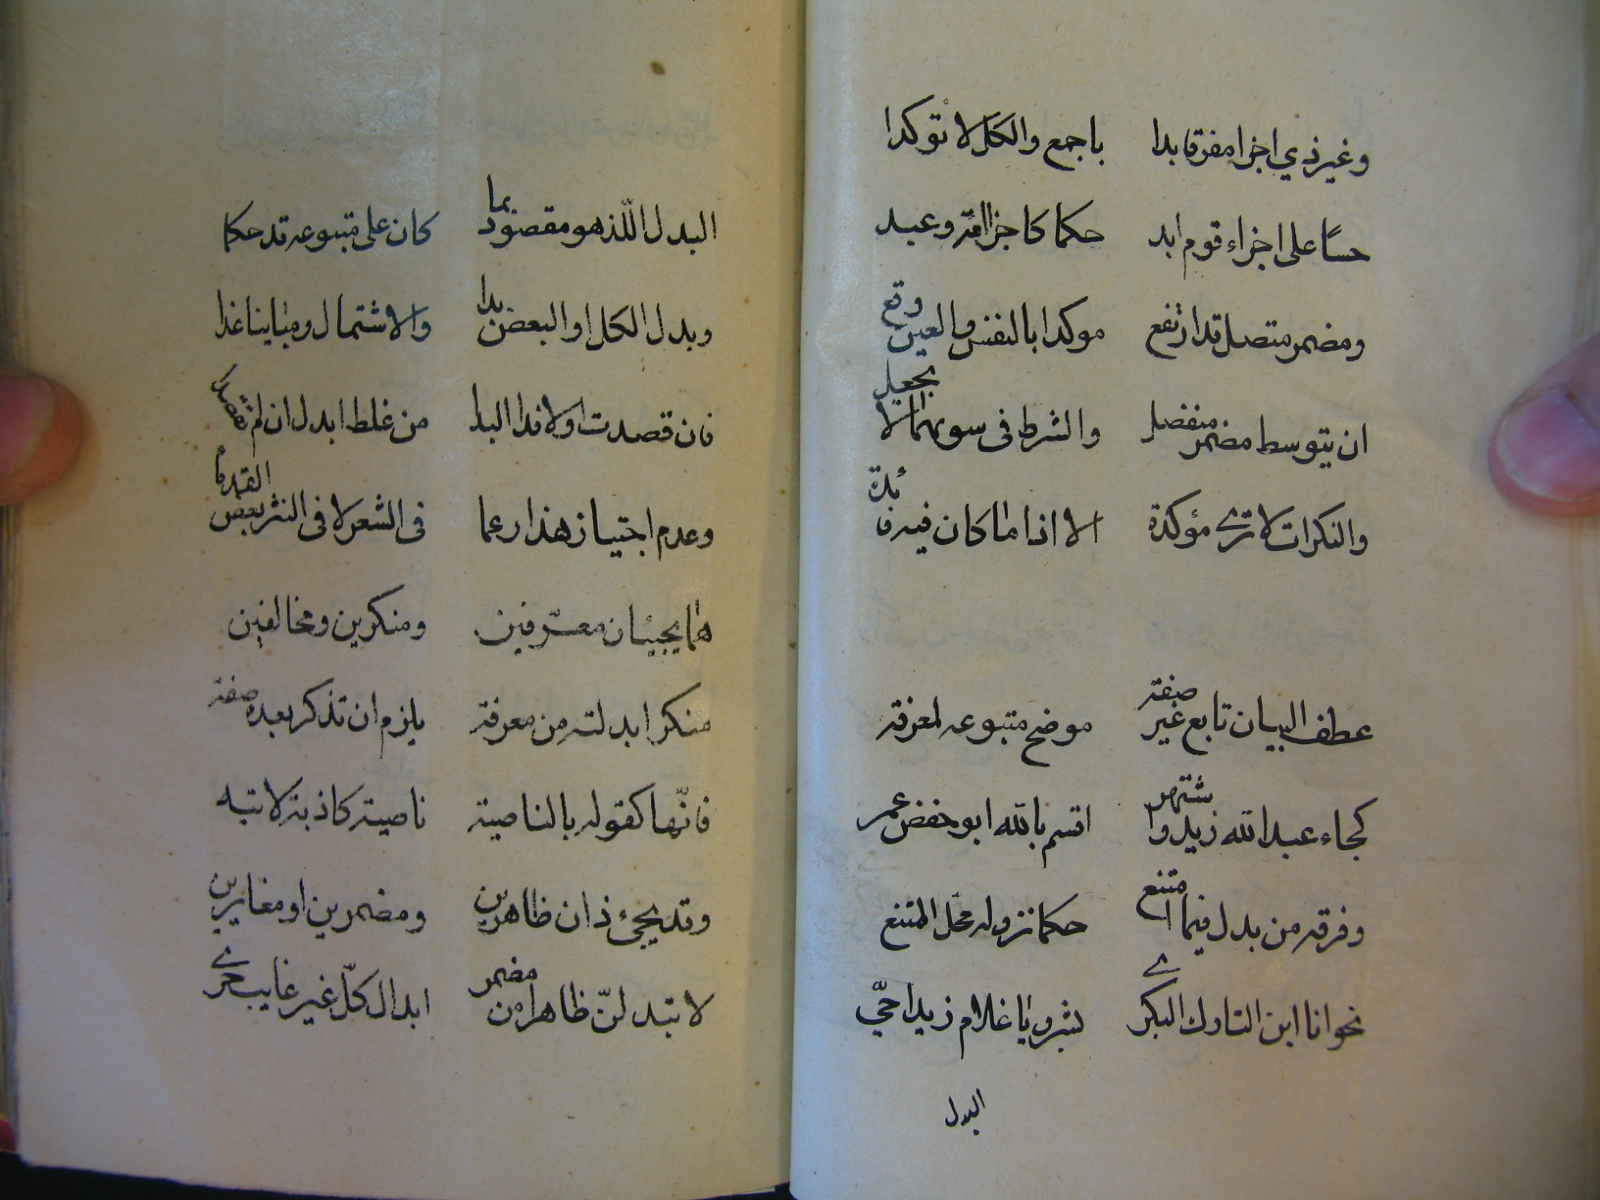 وغير ذي اجزا مفرقا بدا باجمع والكل لا توكدا
حسًا على اجزاء قوم ابد حكما كاجزا امة وعبد
ومضمر متصل قد ارتفع موكدا بالنفس والعين وقع
ان يتوسط مضمر منفصل والشرط فى سويهما لا يجعل
والنكرات لا ترى مؤكدة الا اذا ما كان فيه فائدة
عطف البيان تابع غير صفة موضح متبوعه لمعرفة
كجاء عبد الله زيد واشتهر اقسم بالله ابو حفص عمر
وفرقه من بدل فيما امتنع حكما نزوله محل الممتنع
نحو انا ابن التارك البكرى بشر ويا غلام زيدا حيّ
البدل
البدل اللّذ هو مقصود بما كان على متبوعه قد حكما
وبدل الكل او البعض بدا والاشتمال ومباينا غدا
فان قصدت اولا فذا البدا من غلط ابدل ان لم تقصد
وعدم اجتياز هذا رعما فى الشعر لا فى النثر بعض القدما
هما يجيئان معرّفين ومنكرين ومخالفين
منكر ابدلته من معرفة يلزم ان تذكر بعده صفة
فانّها كقوله بالناصية ناصية كاذبة لاتيه
وقد يجئ ذان ظاهرين ومضمرين او مغايرين
لا تبدلنّ ظاهرا من مضمر ابدال كلّ غير غايب حرى